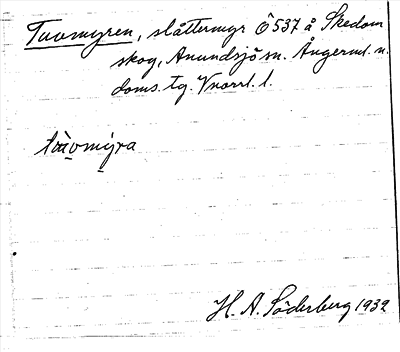 Tuvmyren, slåttermyr Ö537 å Skedom
skog, Anundsjö sn. Ångerml. n.
doms. tg. Vnorrl. l.
tùvmýra
H. A. Söderberg 1932